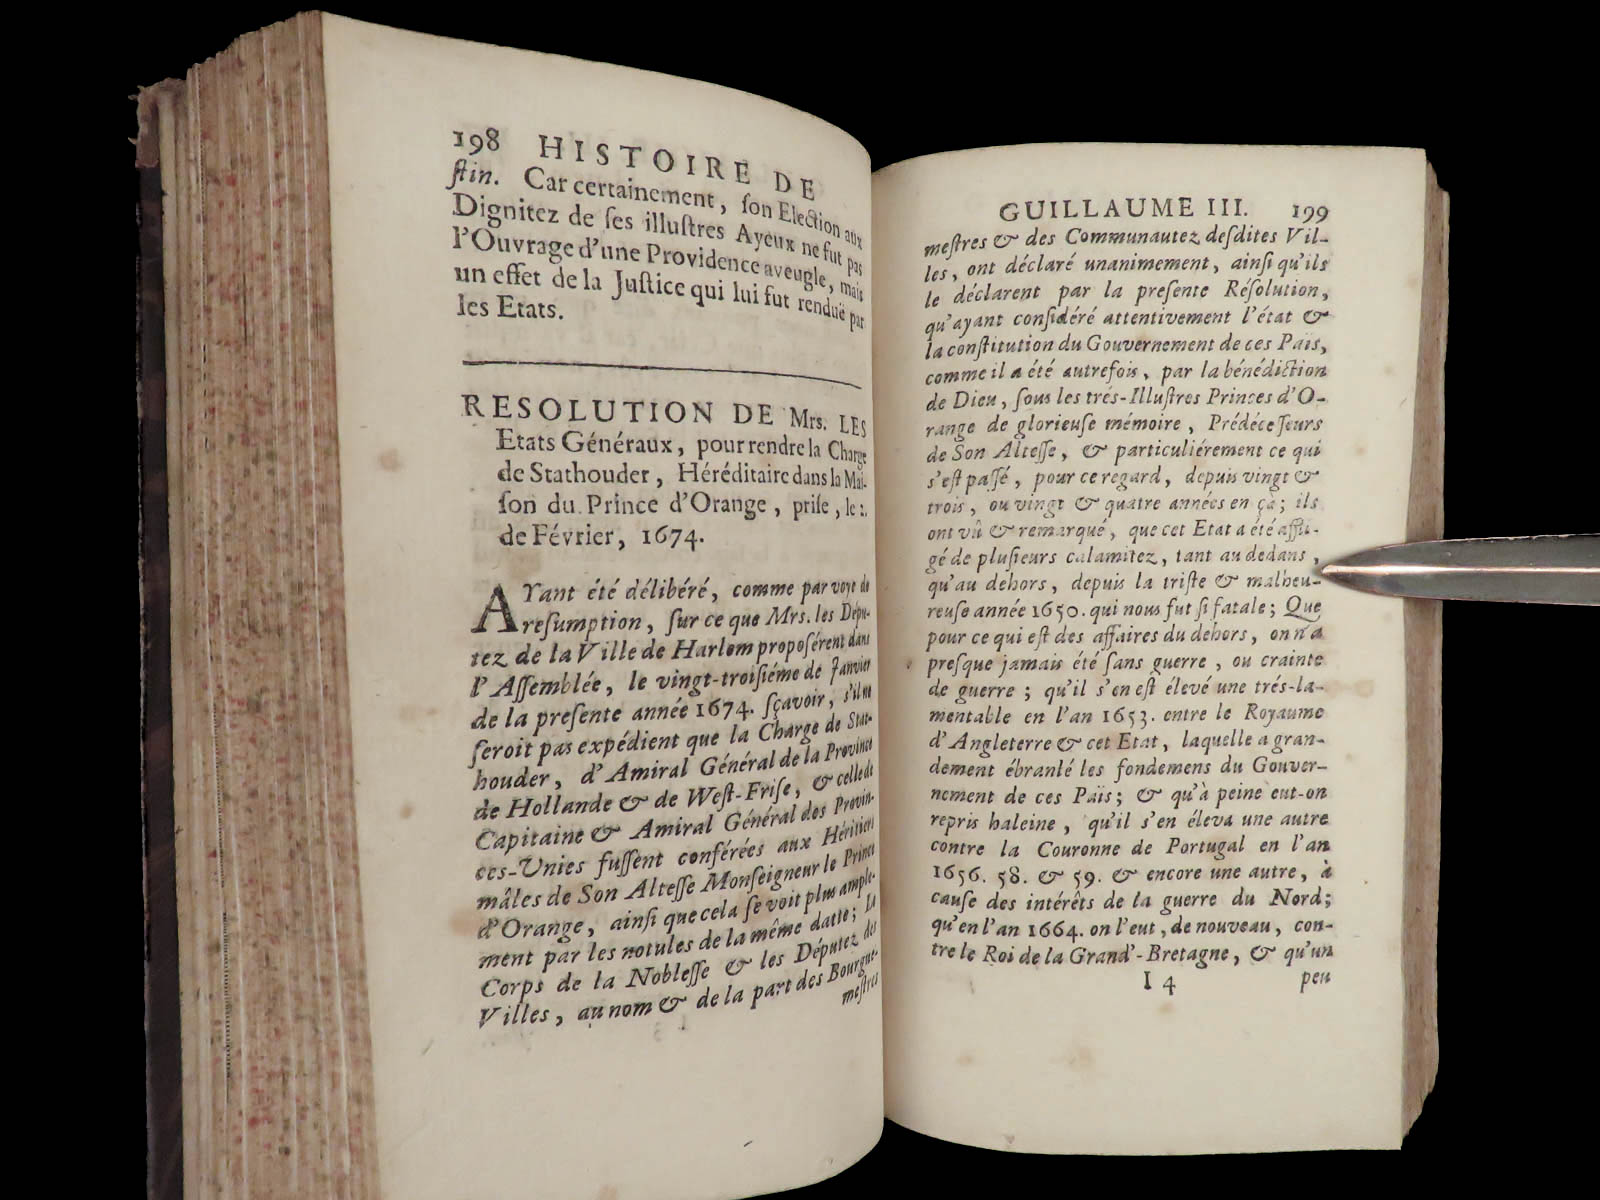 198 HISTOIRE DE
ſtin. Car certainement, ſon Election aux
Dignitez de ſes illuſtres Ayeux ne fut pas
l'Ouvrage d'une Providence aveugle, mais
un effet de la Juſtice qui lui fut renduë par
les Etats.
RESOLUTION DE Mrs. LES
Etats Généraux, pour rendre la Charge
de Stathouder, Héréditaire dans la Mai-
ſon du Prince d'Orange, priſe, le 2.
de Février, 1674.
AYant été délibéré, comme par voye de
reſumption, ſur ce que Mrs. les Dépu-
tez de la Ville de Harlem propoſérent dans
l'Aſſemblée, le vingt-troiſiéme de Janvier
de la preſente année 1674. ſçavoir, s'il ne
ſeroit pas expédient que la Charge de Stat-
houder, d'Amiral Général de la Province
de Hollande & de Weſt-Friſe, & celle de
Capitaine & Amiral Général des Provin-
ces-Unies fuſſent conférées aux Héritiers
mâles de Son Alteſſe Monſeigneur le Prince
d'Orange, ainſi que cela ſe voit plus ample-
ment par les notules de la même datte; La
Corps de la Nobleſſe & les Députez des
Villes, au nom & de la part des Bourgue-
meſtres
GUILLAUME III. 199
meſtres & des Communautez deſdites Vil-
les, ont déclaré unanimement, ainſi qu'ils
le déclarent par la preſente Réſolution,
qu'ayant conſidéré attentivement l'état &
la conſtitution du Gouvernement de ces Païs,
comme il a été autrefois, par la bénédiction
de Dieu, ſous les trés-Illuſtres Princes d'O-
range de glorieuſe mémoire, Prédéceſſeurs
de Son Alteſſe, & particuliérement ce qui
s'eſt paſſé, pour ce regard, depuis vingt &
trois, ou vingt & quatre années en ça; ils
ont vû & remarqué, que cet Etat a été affli-
gé de pluſieurs calamitez, tant au dedans,
qu'au dehors, depuis la triſte & malheu-
reuse année 1650. qui nous fut ſi fatale; Que
pour ce qui eſt des affaires du dehors, on n'a
preſque jamais été ſans guerre, ou crainte
de guerre; qu'il s'en eſt élevé une trés-la-
mentable en l'an 1653. entre le Royaume
d'Angleterre & cet Etat, laquelle a gran-
dement ébranlé les fondemens du Gouver-
nement de ces Païs; & qu'à peine eut-on
repris haleine, qu'il s'en éleva une autre
contre la Couronne de Portugal en l'an
1656. 58. & 59. & encore une autre, à
cauſe des intérêts de la guerre du Nord;
qu'en l'an 1664. on l'eut, de nouveau, con-
tre le Roi de la Grand'-Bretagne, & qu'un
I 4 peu